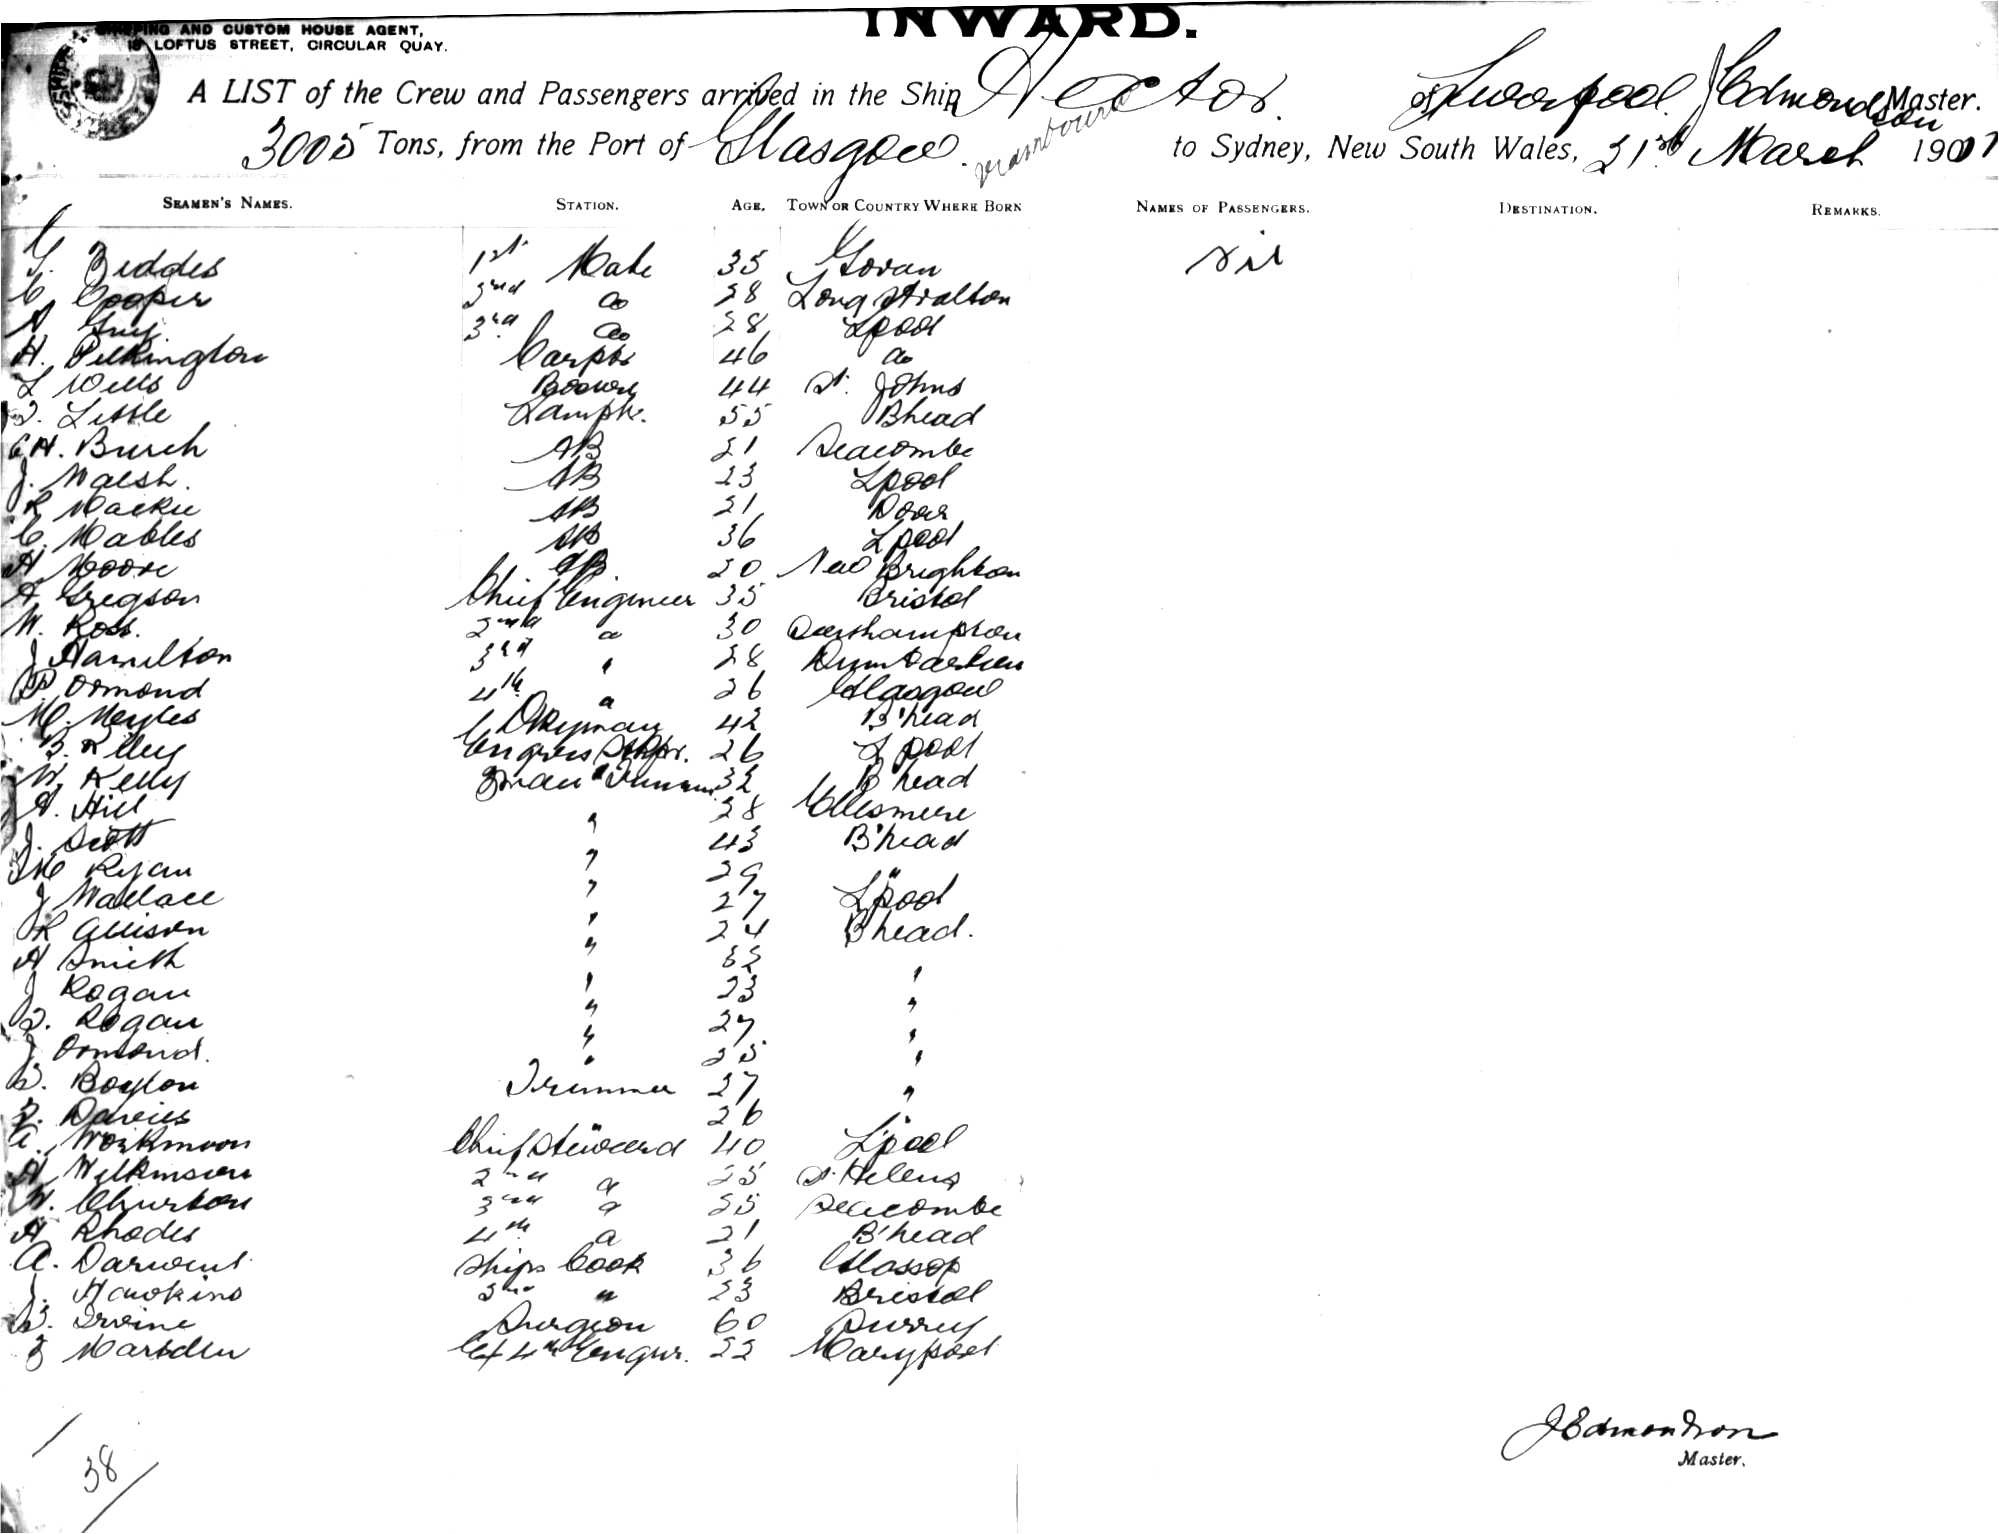 INWARD.
SHIPPING AND CUSTOM HOUSE AGENT,
LOFTUS STREET, CIRCULAR QUAY.
A LIST of the Crew and Passengers arrived in the Ship Hector of Liverpool J Edmondson Master.
3005 Tons, from the Port of Glasgow to Sydney, New South Wales, 31st March 1901
SEAMEN'S NAMES. STATION. AGE. TOWN OR COUNTRY WHERE BORN NAMES OF PASSENGERS. DESTINATION. REMARKS.
G. Geddes 1st Mate 35 Govan Nil
C. Cooper 2nd do 28 Long Stratton
A. Guy 3rd do 28 Lpool
H. Pilkington Carptr 46 do
L Wells Bosun 44 St. Johns
T. Little Lamptr. 55 Bhead
C H. Burch AB 21 Seacombe
J. Walsh. AB 23 Lpool
R Mackie AB 21
C. Mables AB 36 Lpool
A Moore AB 20 New Brighton
A Gregson Chief Engineer 35 Bristol
W. Ross. 2nd " 30
J Hamilton 3rd " 28 Dumbarton
P. Ormond 4th " 26 Glasgow
M. Meyles Dkeyman 42 B'head
B. Riley Engrs Stkpr. 26 Lpool
W. Kelly 32 B'head
A. Hill " 28 Ellesmere
J. Scott " 43 B'head
M Ryan " 29 "
J Wallace " 27 Lpool
R Allison " 24 Bhead.
A Smith " "
J Rogan " 23 "
T. Rogan " 27 "
J Ormond. " 25 "
Boylon Trimmer 27 "
Davies " 26 "
Workmoon Chief Steward 40 L'pool
H Wilkinson 2nd " 25 St. Helens
W. Churton 3rd " 25 Seacombe
A Rhodes 4th " 21 B'head
A. Darwent Ships Cook 36 Glossop
J. Hawkins 2nd " 23 Bristol
Irvine Surgeon 60 Surrey
Marsden Ex 4th Engnr. 22 Maryport
38
J Edmondson
Master.